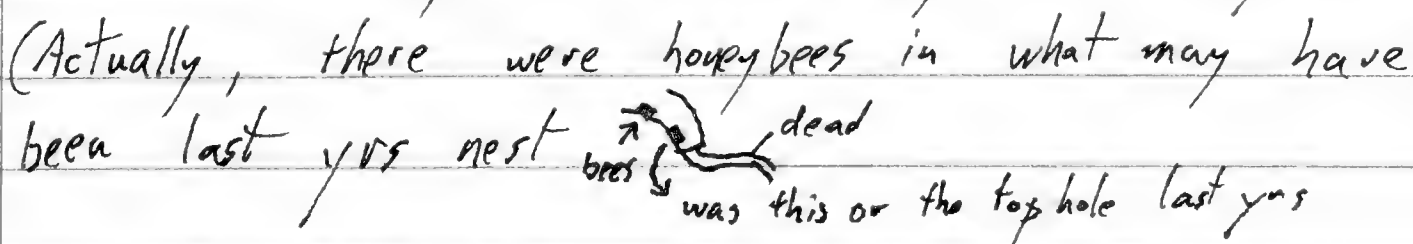 (Actually, there were honeybees in what may have
been last yrs nest
dead
bees
was this or the top hole last yrs